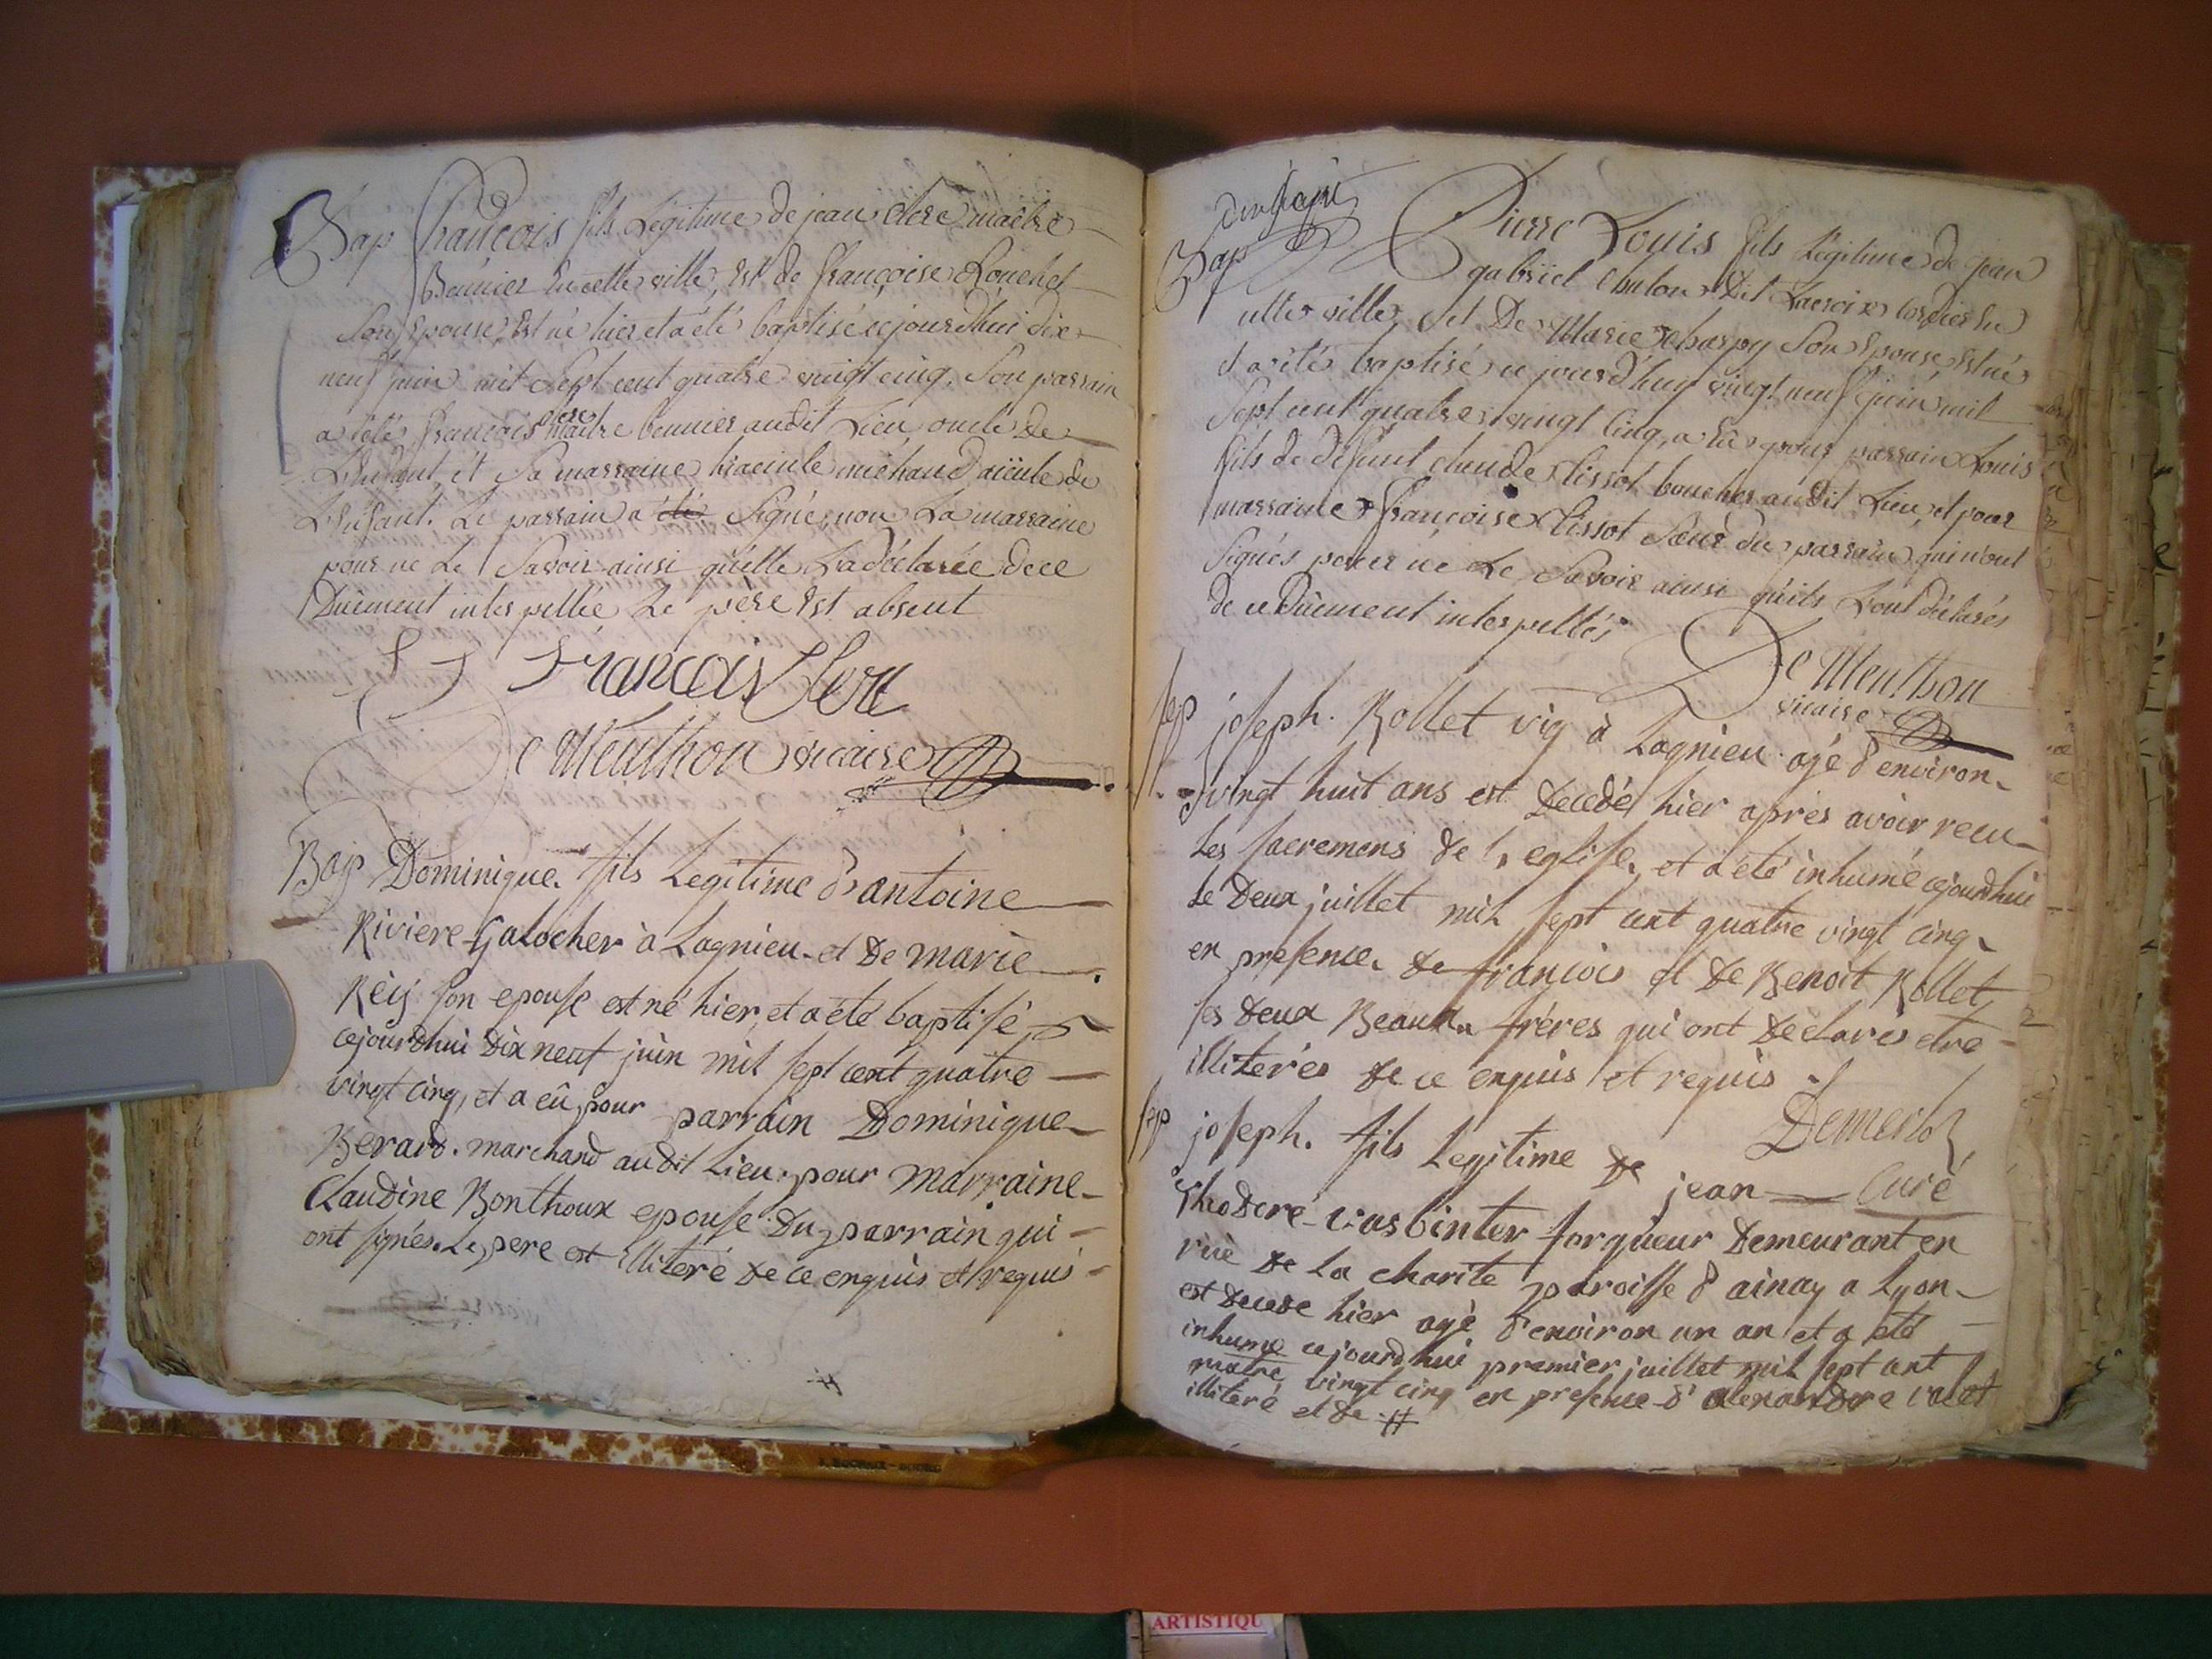 Bap François fils Legitime de jean Clerc maitre
Bennier En cette ville, Est de françoise Louchet
Son Epouse, Est né hier et a été baptisé ce jourdhui dix
neuf juin mil Sept cent quatre vingt cinq. Son parrain
clerc
a été françois maitre bennier audit Lieu oncle De
L'Enfant, et Sa marraine hiacinte michaud aiëule de
L'Enfant. Le parrain a été Signé, non La marraine
pour ne Le Savoir ainsi qu'elle L'a déclarée de ce
Dûement interpellée Le père Est absent
François Clerc
De Menthon vicaire
Bap Dominique fils Legitime d'antoine
Riviere Galocher à Lagnieu et De marie
Réÿ son epouse est né hier, et a été baptisé
cejourdhui Dix neuf juin mil sept cent quatre
vingt cinq, et a eû pour parrain Dominique
Berard marchand audit Lieu pour Marraine
Claudine Bonthoux epouse Du parrain qui
ont signés. Le pere est illiteré De ce enquis et requis
Bap Pierre Louis fils Légitime de jean
gabriel Dit Lacroix Cordier En
cette ville, et De Marie Charpy Son Epouse, Est né
et a été baptisé ce jourd'huy vingt neuf juin mil
Sept cent quatre vingt Cinq, a Eû pour parrain Louis
fils de défunt claude Clissot boucher audit Lieu, et pour
marraine françoise Clissot Sœur du parrain, qui n'ont
Signés pour ne Le Savoir ainsi qu'ils L'ont déclarés
de ce Dûement interpellés
De Menthon
vicaire
sep joseph Rollet vig à Lagnieu agé d'environ
vingt huit ans est Decedé hier après avoir reçu
Les sacremens de L'eglise, et a été inhumé cejourdhui
Le Deux juillet mil sept cent quatre vingt cinq
en presence De françois et De Benoit Rollet
ses Deux Beaux frères qui ont Declarés etre
illiterés De ce enquis et requis
Demerloz
curé
sep joseph fils Legitime De jean
Theodore forgueur Demeurant en
rüe De La charité paroisse d'ainay a Lyon
est Decede hier agé d'environ un an et a eté
inhumé cejourdhui premier juillet mil sept cent
quatre vingt cinq en presence d'alexandre
illiteré et De #
ARTISTIQU